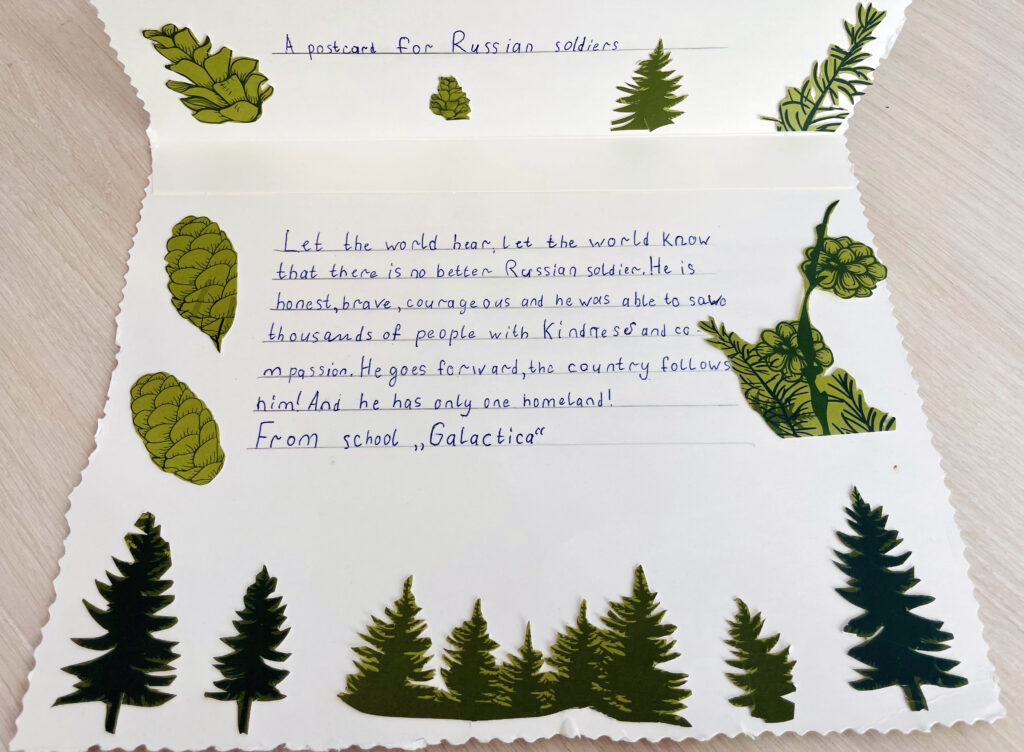 A postcard for Russian soldiers
Let the world hear, let the world know
that there is no better Russian soldier. He is
honest, brave, courageous and he was able to save
thousands of people with Kindness and co-
mpassion. He goes forward, the country follows
him! And he has only one homeland!
From school „Galactica“